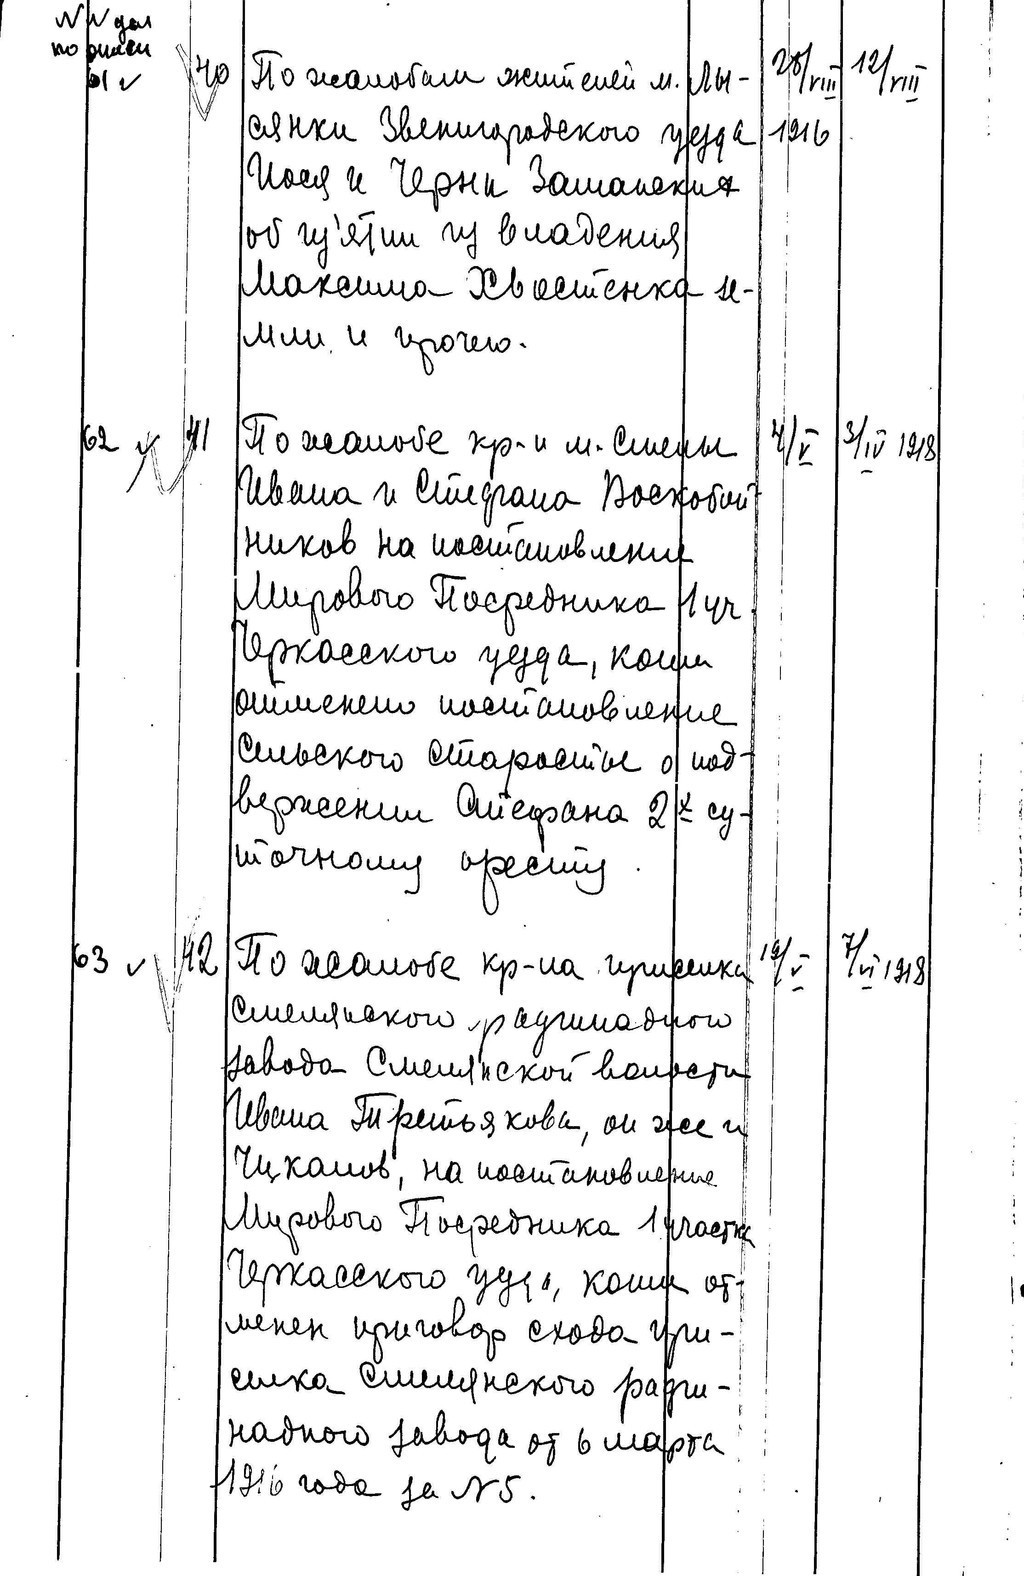 NN дел
по описи
61 40 По жалобам жителей м. Лы- 28/VIII 12/VIII
сянки Звенигородского уезда 1916
Иося и Черни
об из'ятии из владения
Максима Хвостенка зе-
мли и прочего.
62 41 По жалобе кр-н м. Смелы 4/V 3/IV 1918
Ивана и Стефана Воскобой-
ников на постановление
Мирового Посредника 1 уч
Черкасского уезда, коим
отменено постановление
сельского старосты о под-
вержении Стефана 2х су-
точному аресту.
63 42 По жалобе кр-на приселка 19/V 7/VI 1918
Смелянского рафинадного
завода Смелянской волости
Ивана Третьякова, он же и
Чикалов, на постановление
Мирового Посредника 1 участка
Черкасского уезда, коим от-
менен приговор схода при-
селка Смелянского рафи-
надного завода от 6 марта
1916 года за N5.